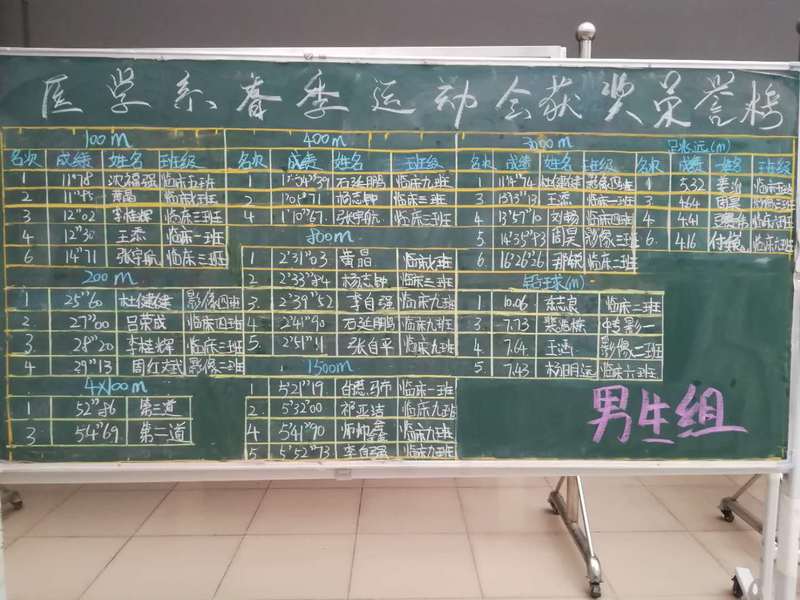 医学系春季运动会获奖荣誉榜
100m
名次 成绩 姓名 班级
1 11"78 沈福强 临床五班
2 11"93 黄晶
3 12"02 李桂辉 临床三班
4 12"30 王添 临床一班
6 14"71 张宇航 临床三班
200m
1 25"60 杜健健 影像四班
2 27"00 吕荣成 临床四班
3 28"20 李桂辉 临床三班
4 29"13 周红斌 影像三班
4x100m
1 52"86 第三道
3 54"69 第二道
400m
名次 成绩 姓名 班级
1 石延鹏 临床九班
2 1'04"71 杨志钟 临床三班
4 1'10"67 张宇航 临床三班
800m
1 2'31"03 黄晶
2 2'33"84 杨志钟 临床三班
3 2'39"52 李自强 临床九班
4 2'41"90 石延鹏 临床九班
5 2'51"11 张自平 临床九班
1500m
1 5'21"19 白德马布 临床一班
2 5'32"00 祁亚洁 临床九班
4 5'41"90 临床九班
5 5'52"73 李自强 临床九班
3000m
名次 成绩 姓名 班级
1 11'4"74 杜健健 影像四班
3 13'13"13 王添 临床一班
4 13'57"10 刘畅 临床四班
5 14'35"93 周昊 影像三班
6 16'26"26 临床二班
铅球(m)
1 10.06 临床三班
3 7.73 中专影一
4 7.64 王涵 影像二班
5 7.43 杨明远 临床六班
跳远(m)
名次 成绩 姓名 班级
1 5.32
3 4.64 周昊 影像三班
4 4.41 临床六班
6 4.16 临床九班
男生组